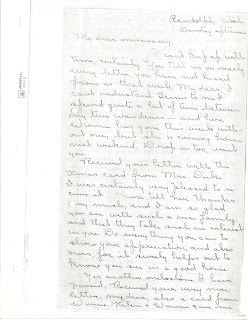 Randolph Wis.
Sunday afternoon
My dear missionary,
I can't keep up with
time, certainly. You tell us in nearly
every letter you have not heard
from us that week. My dear, I
can't understand. Seems to me I
spend quite a bit of time between
any two Wednesdays – and here
Winnie has gone this week with
out one, but she is coming home
next weekend. Drop in too, won't
you.
Received your letter with the
Xmas card from Mrs. Duke.
I was certainly very pleased to re-
ceive it. Please tell her Thanks
very much, and I am so glad
you are with such a nice family
and that they take such an interest
in you. Do everything you can to
show your appreciation, and also
ours, for it surely helps out to
know you are in a good home.
Yes another milestone I have
passed. Received your very nice
letter, my dear, also a card from
Winnie. Helen &